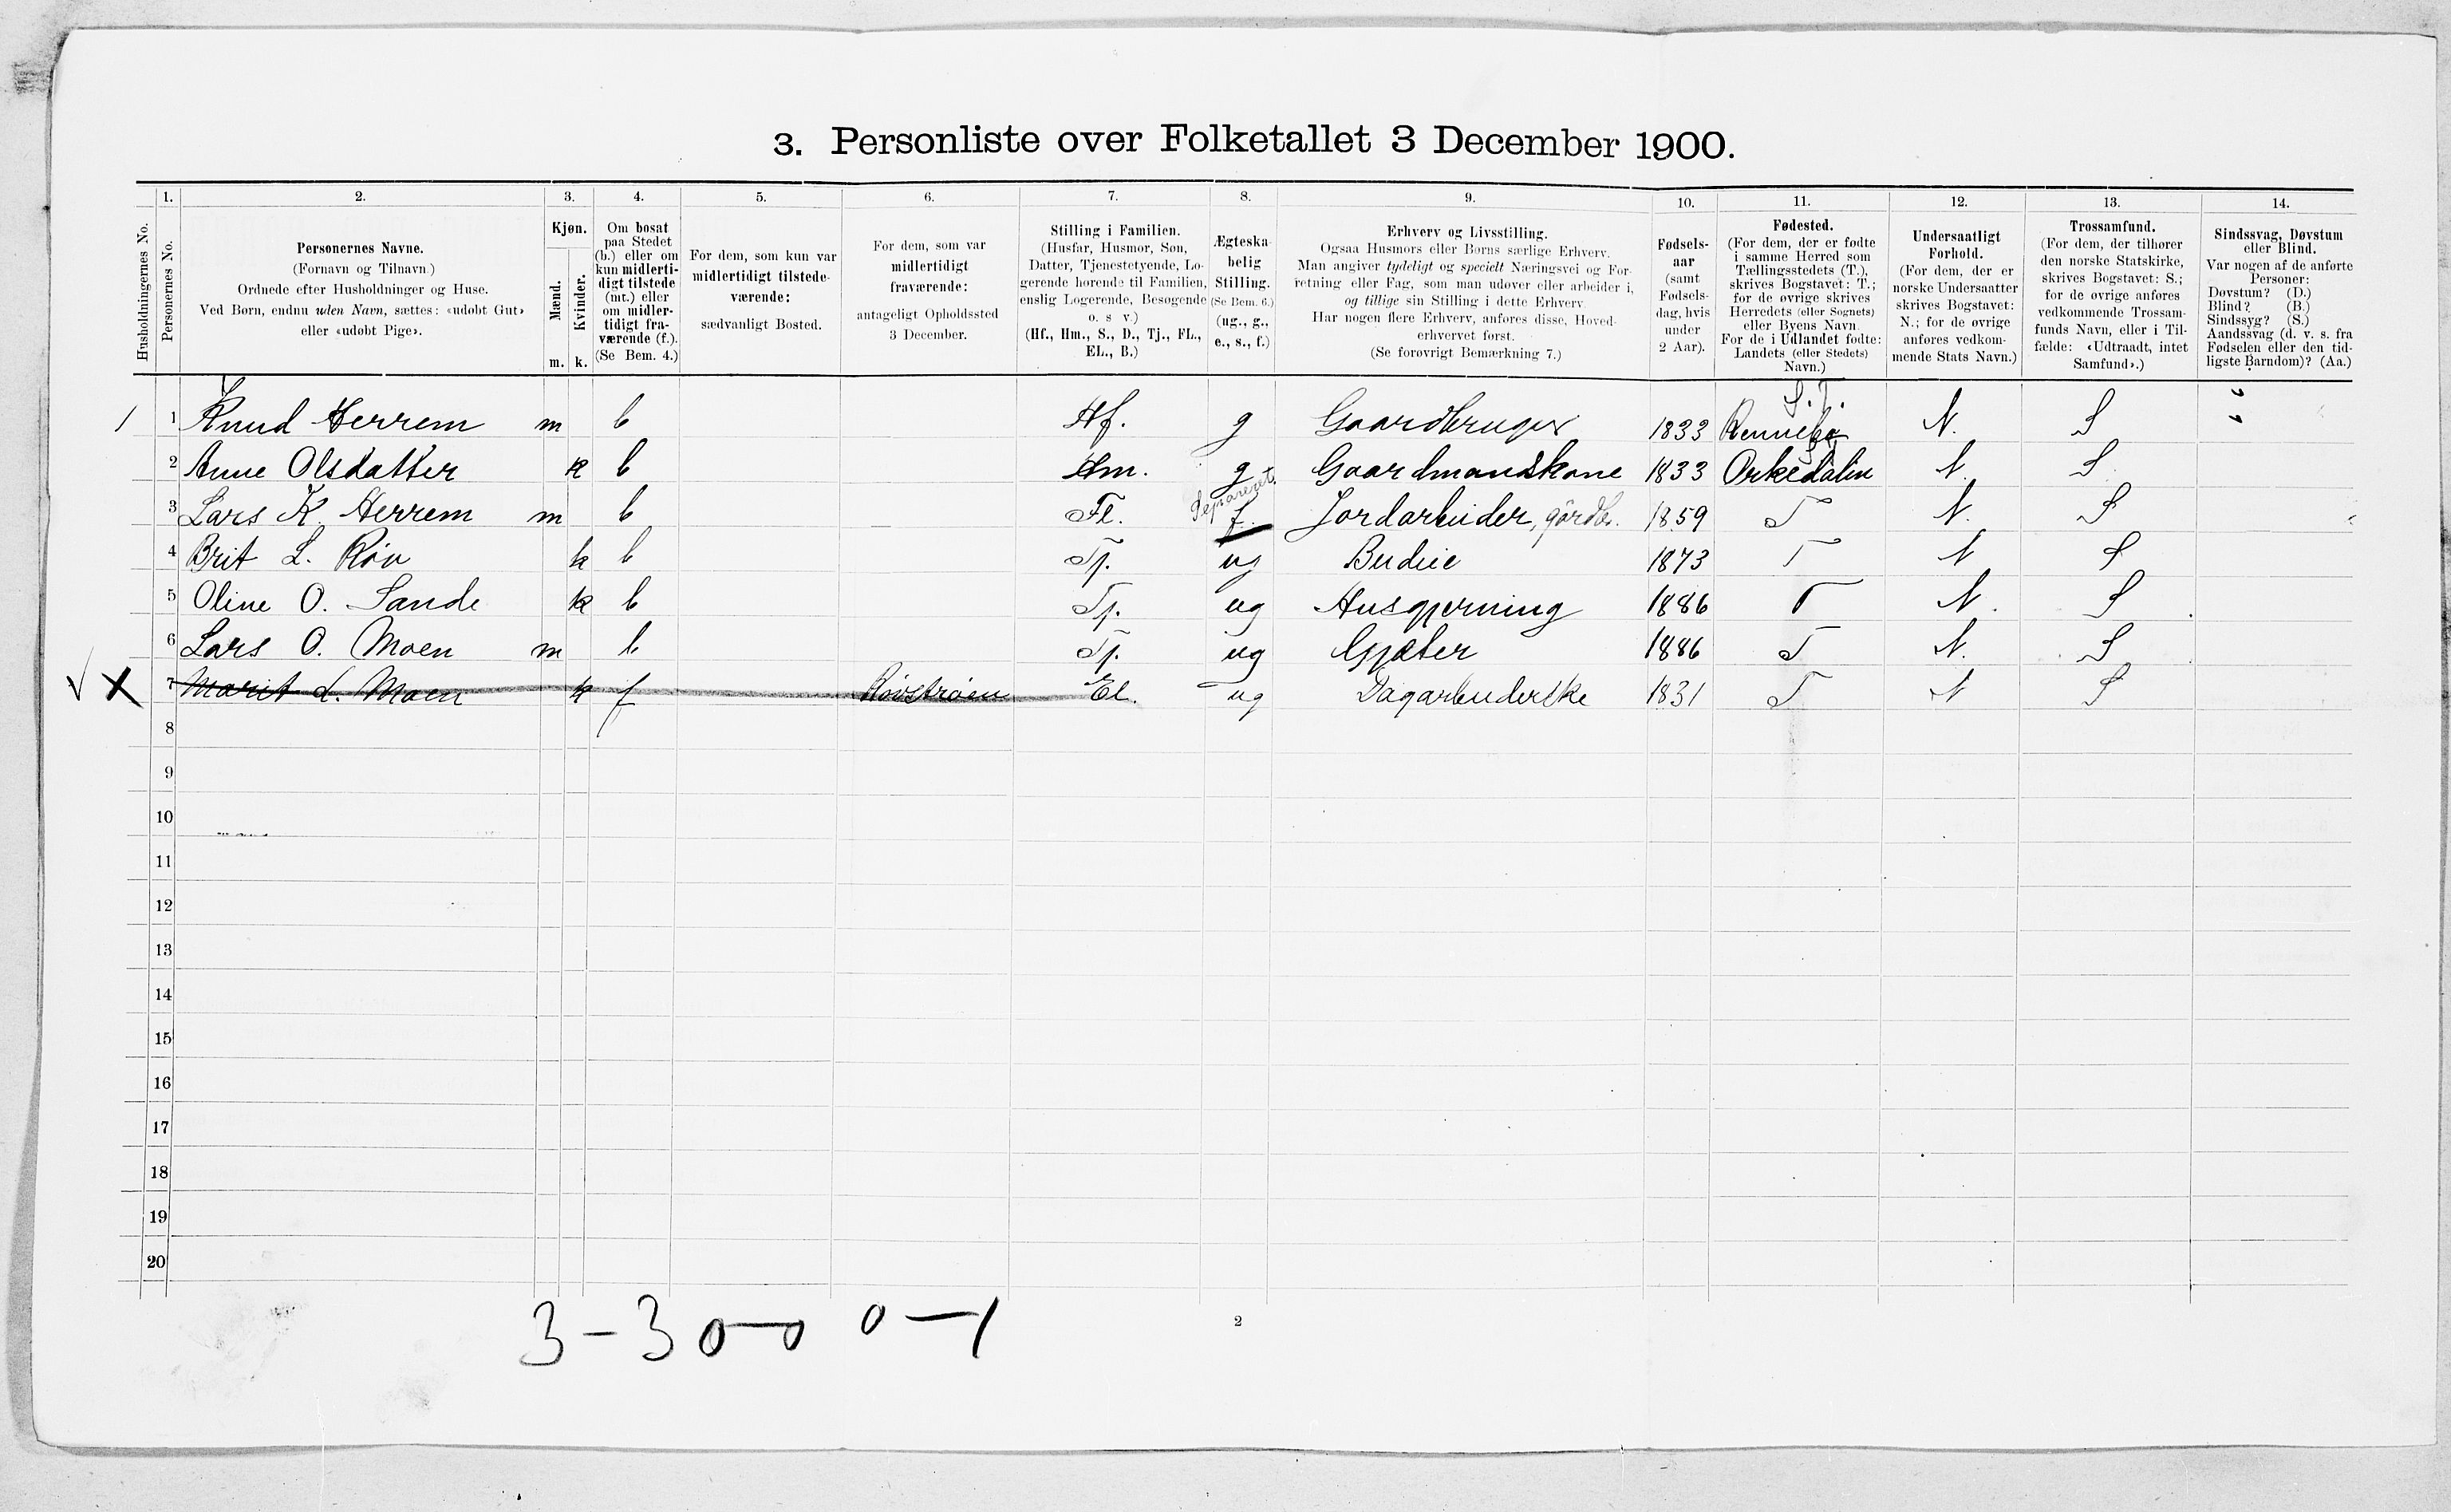 3. Personliste over Folketallet 3 December 1900.
Husholdningernes No.
1.
Personernes No.
2.
Personernes Navne.
(Fornavn og Tilnavn.)
Ordnede efter Husholdninger og Huse.
Ved Børn, endnu uden Navn, sættes: «udøbt Gut»
eller «udøbt Pige».
3.
Kjøn.
Mænd.
Kvinder.
m. k.
4.
Om bosat
paa Stedet
(b.) eller om
kun midlerti-
digt tilstede
(mt.) eller
om midler-
tidigt fra-
værende (f.).
(Se Bem. 4.)
5.
For dem, som kun var
midlertidigt tilstede-
værende:
sædvanligt Bosted.
6.
For dem, som var
midlertidigt
fraværende:
antageligt Opholdssted
3 December.
7.
Stilling i Familien.
(Husfar, Husmor, Søn,
Datter, Tjenestetyende, Lo-
gerende hørende til Familien,
enslig Logerende, Besøgende
o. s v.)
(Hf., Hm., S., D., Tj., FL.,
EL., B.)
8.
Ægteska-
belig
Stilling.
(Se Bem. 6.)
(ug., g.,
e., s., f.)
9.
Erhverv og Livsstilling.
Ogsaa Husmors eller Børns særlige Erhverv.
Man angiver tydeligt og specielt Næringsvei og For-
retning eller Fag, som man udøver eller arbeider i,
og tillige sin Stilling i dette Erhverv.
Har nogen flere Erhverv, anføres disse, Hoved-
erhvervet først.
(Se forøvrigt Bemærkning 7.)
10.
Fødsels-
aar
(samt
Fødsels-
dag, hvis
under
2 Aar).
11.
Fødested.
(For dem, der er fødte
i samme Herred som
Tællingsstedets (T.),
skrives Bogstavet: T.;
for de øvrige skrives
Herredets (eller Sognets)
eller Byens Navn.
For de i Udlandet fødte:
Landets (eller Stedets)
Navn.)
12.
Undersaatligt
Forhold.
(For dem, der er
norske Undersaatter
skrives Bogstavet:
N.; for de øvrige
anføres vedkom-
mende Stats Navn.)
13.
Trossamfund.
(For dem, der tilhører
den norske Statskirke,
skrives Bogstavet: S.;
for de øvrige anføres
vedkommende Trossam-
funds Navn, eller i Til-
fælde: «Udtraadt, intet
Samfund».)
14.
Sindssvag, Døvstum
eller Blind.
Var nogen af de anførte
Personer:
Døvstum? (D.)
Blind? (B.)
Sindssyg? (S.)
Aandssvag (d. v. s. fra
Fødselen eller den tid-
ligste Barndom)? (Aa.)
S.T.
1 1 Knud Herrem m b Hf. g Gaardbruger 1833 Rennebo N. S
2 Anne Olsdatter k b Hm. g Gaardmandskone 1833 Orkedalen N. S.
Separeret.
3 Lars K. Herrem m b Fl. f. Jordarbeider, gårdbr. 1859 T N. S
4 Brit L. Røv k b Tj. ug Budeie 1873 T N S
5 Oline O. Sande k b Tj. ug Husgjerning 1886 T N. S
6 Lars O. Moen m b Tj. ug Gjæter 1886 T N. S
X 7 Marit L. Moen k f Røvstrøen El. ug Dagarbeiderske 1831 T N S
8
9
10
11
12
13
14
15
16
17
18
19
20
3-3 0-0 0-1
2